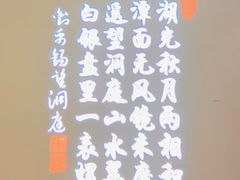 湖光秋月两相和
潭面无风镜未磨
遥望洞庭山水翠
白银盘里一青螺
刘禹锡望洞庭